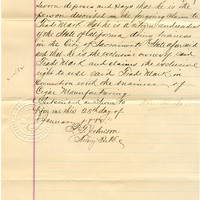 deposes and says that he is the
person described in the foregoing claim to
Trade Mark that he is a
of the State of California doing business
in the City of Sacramento State aforesaid
and that he is the exclusive owner of said
Trade Mark and claims the exclusive
right to use said Trade Mark in
connection with the business of
Cigar Manufacturing
Subscribed and sworn to
before me this 20th day of
January 188
Johnson
Notary Public